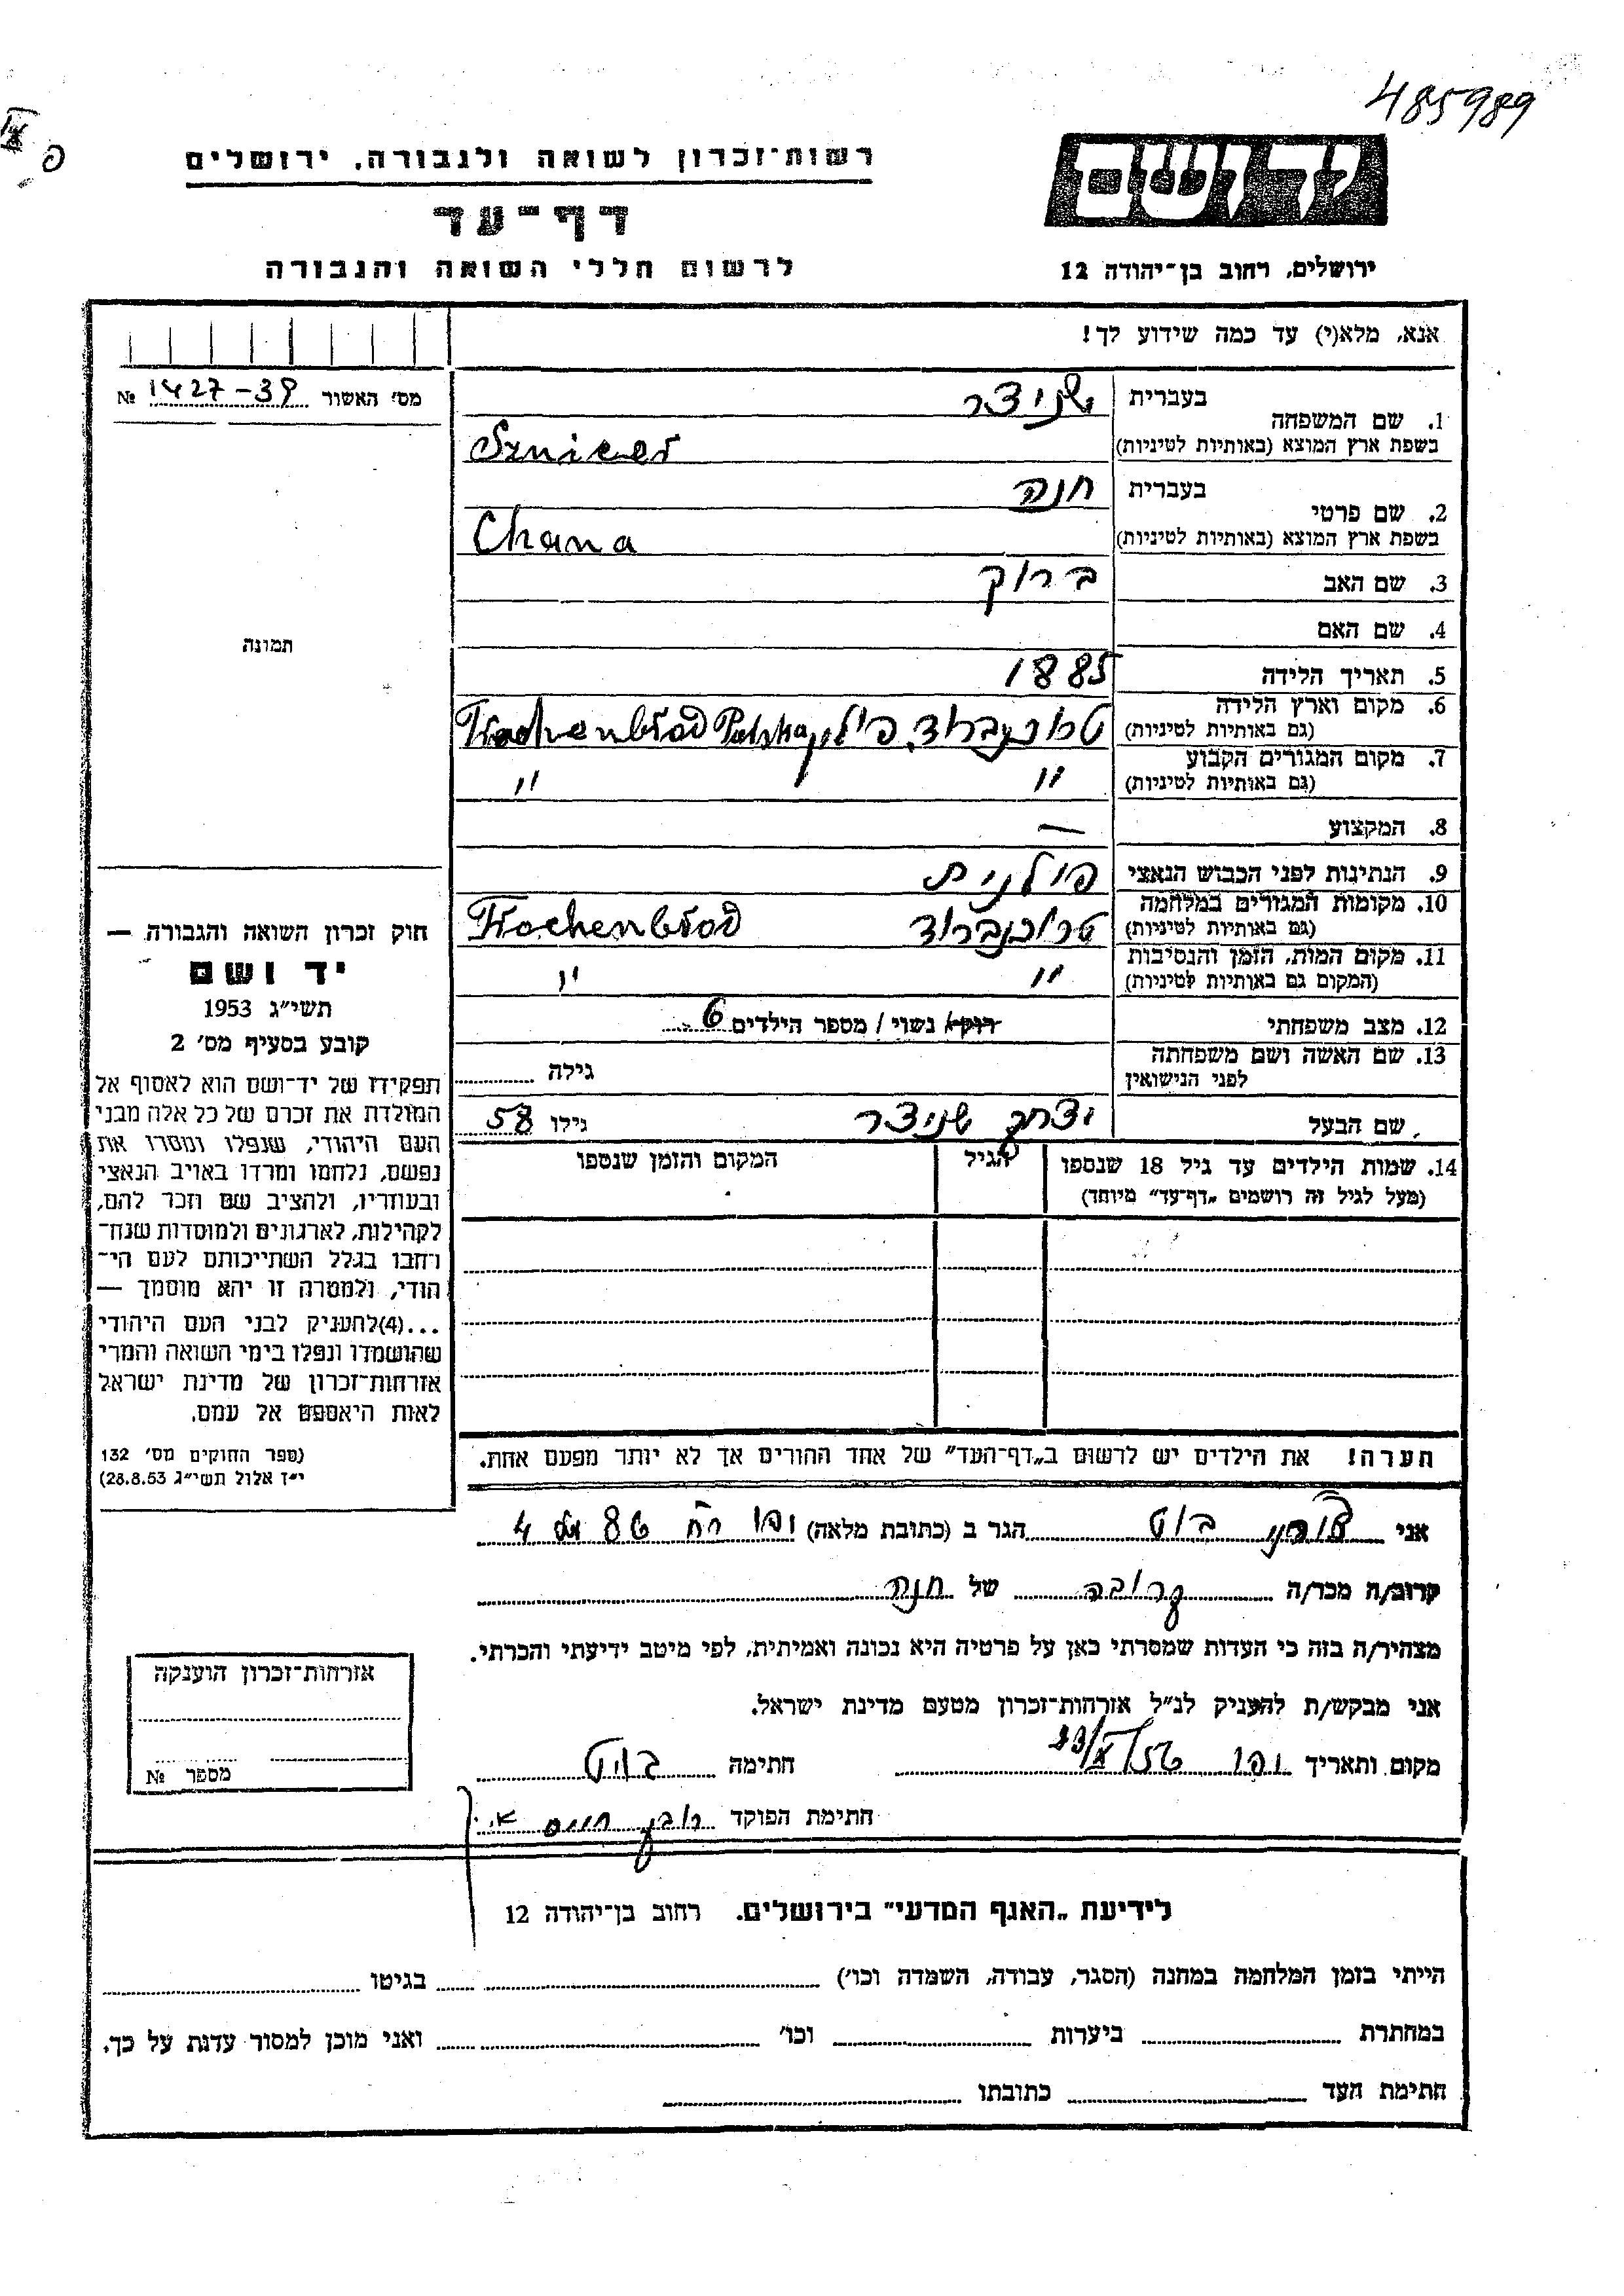 485989
רשות־זכרון לשואה ולגבורה, ירושלים
יד ושם
דף־עד
לרשום חללי השואה והגבורה
ירושלים, רחוב בן־יהודה 12
אנא, מלא(י) עד כמה שידוע לך!
מס׳ האשור 1427-39 №
1. שם המשפחה
בעברית שניצר
בשפת ארץ המוצא (באותיות לטיניות) Sznicer
2. שם פרטי
בעברית חנה
בשפת ארץ המוצא (באותיות לטיניות) Chana
3. שם האב ברוך
4. שם האם
תמונה
5. תאריך הלידה 1885
6. מקום וארץ הלידה
(גם באותיות לטיניות) Polska
7. מקום המגורים הקבוע
(גם באותיות לטיניות) " "
8. המקצוע —
9. הנתינות לפני הכבוש הנאצי פולנית
10. מקומות המגורים במלחמה
(גם באותיות לטיניות) טרוכנברוד Trochenbrod
11. מקום המות, הזמן והנסיבות
(המקום גם באותיות לטיניות) " "
12. מצב משפחתי רווק/ נשוי / מספר הילדים 6
13. שם האשה ושם משפחתה
לפני הנישואין גילה
שם הבעל יצחק שניצר גילו 58
14. שמות הילדים עד גיל 18 שנספו
(מעל לגיל זה רושמים „דף־עד" מיוחד)
הגיל
המקום והזמן שנספו
הערה! את הילדים יש לרשום ב„דף־העד" של אחד ההורים אך לא יותר מפעם אחת.
חוק זכרון השואה והגבורה —
יד ושם
תשי״ג 1953
קובע בסעיף מס׳ 2
תפקידו של יד־ושם הוא לאסוף אל
המולדת את זכרם של כל אלה מבני
העם היהודי, שנפלו ומסרו את
נפשם, נלחמו ומרדו באויב הנאצי
ובעוזריו, ולהציב שם וזכר להם,
לקהילות, לארגונים ולמוסדות שנח־
רבו בגלל השתייכותם לעם הי־
הודי, ולמטרה זו יהא מוסמך —
...(4)להעניק לבני העם היהודי
שהושמדו ונפלו בימי השואה והמרי
אזרחות־זכרון של מדינת ישראל
לאות היאספם אל עמם.
(ספר החוקים מס׳ 132
י״ז אלול תשי״ג 28.8.53)
אני בוט הגר ב (כתובת מלאה) יפו רח 4
קרוב/ה מכר/ה קרובה של חנה
מצהיר/ה בזה כי העדות שמסרתי כאן על פרטיה היא נכונה ואמיתית, לפי מיטב ידיעתי והכרתי.
אני מבקש/ת להעניק לנ״ל אזרחות־זכרון מטעם מדינת ישראל.
מקום ותאריך יפו חתימה בוט
חתימת הפוקד
אזרחות־זכרון הוענקה
מספר №
לידיעת „האגף המדעי" בירושלים. רחוב בן־יהודה 12
הייתי בזמן המלחמה במחנה (הסגר, עבודה, השמדה וכו׳) בגיטו
במחתרת ביערות וכו׳ ואני מוכן למסור עדות על כך.
חתימת העד כתובתו